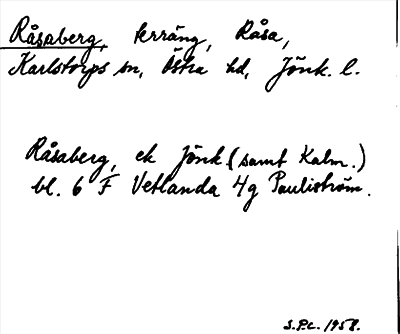 Råsaberg, terräng, Råsa,
Karlstorps sn, Östra hd, Jönk. l.
Råsaberg, ek Jönk (samt Kalm.)
bl. 6 F Vetlanda 4g Pauliström.
S.P.C. 1958.